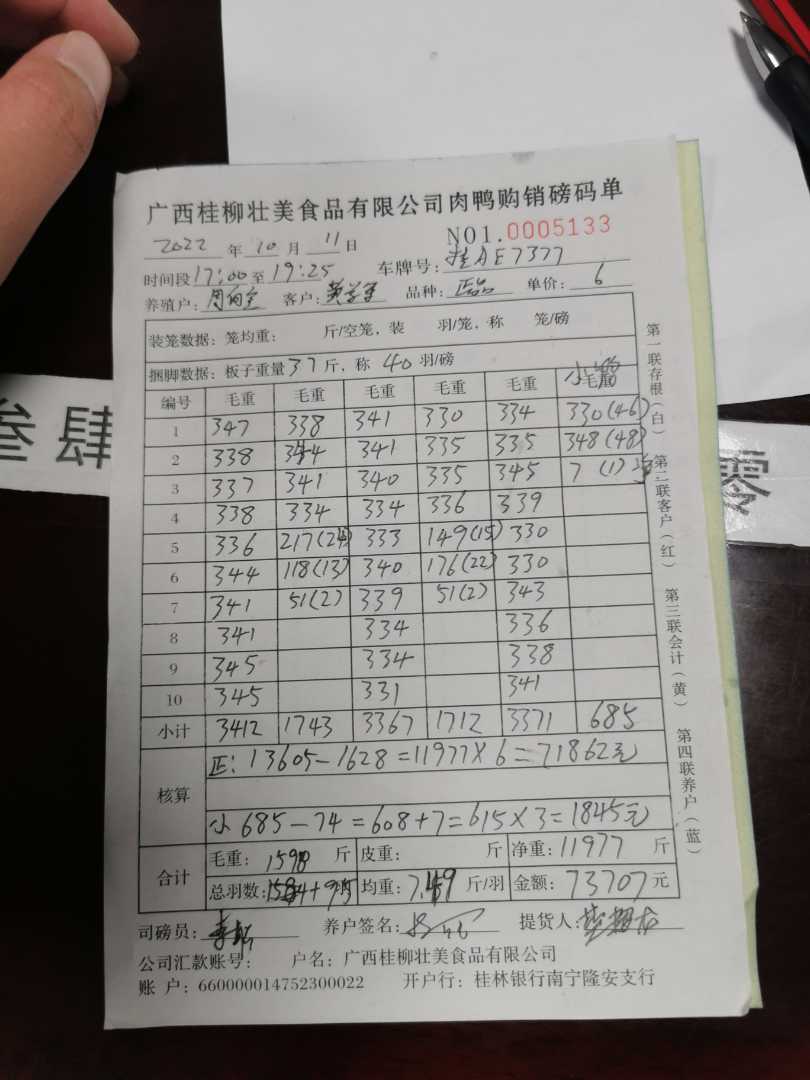 广西桂柳壮美食品有限公司肉鸭购销磅码单
2022 年 10 月 11 日 NO1.0005133
时间段 17:00 至 19:25 车牌号: 桂AE7377
养殖户: 客户: 品种: 正品 单价: 6
装笼数据: 笼均重: 斤/空笼, 装 羽/笼, 称 笼/磅
捆脚数据: 板子重量 37 斤, 称 40 羽/磅
编号 毛重 毛重 毛重 毛重 毛重 小毛
1 347 338 341 330 334 330(46)
2 338 344 341 335 335 348(48)
3 337 341 340 335 345 7 (1)
4 338 334 334 336 339
5 336 217(24) 333 149(15) 330
6 344 118(13) 340 176(22) 330
7 341 51(2) 339 51(2) 343
8 341 334 336
9 345 334 338
10 345 331 341
小计 3412 1743 3367 1712 3371 685
核算 正: 13605-1628=11977×6=71862元
小 685-74=608+7=615×3=1845元
合计 毛重: 斤 皮重: 斤 净重: 11977 斤
总羽数: 均重: 斤/羽 金额: 73707 元
司磅员: 养户签名: 提货人:
公司汇款账号: 户名: 广西桂柳壮美食品有限公司
账 户: 660000014752300022 开户行: 桂林银行南宁隆安支行
第一联存根(白) 第二联客户(红) 第三联会计(黄) 第四联养户(蓝)
叁肆
零